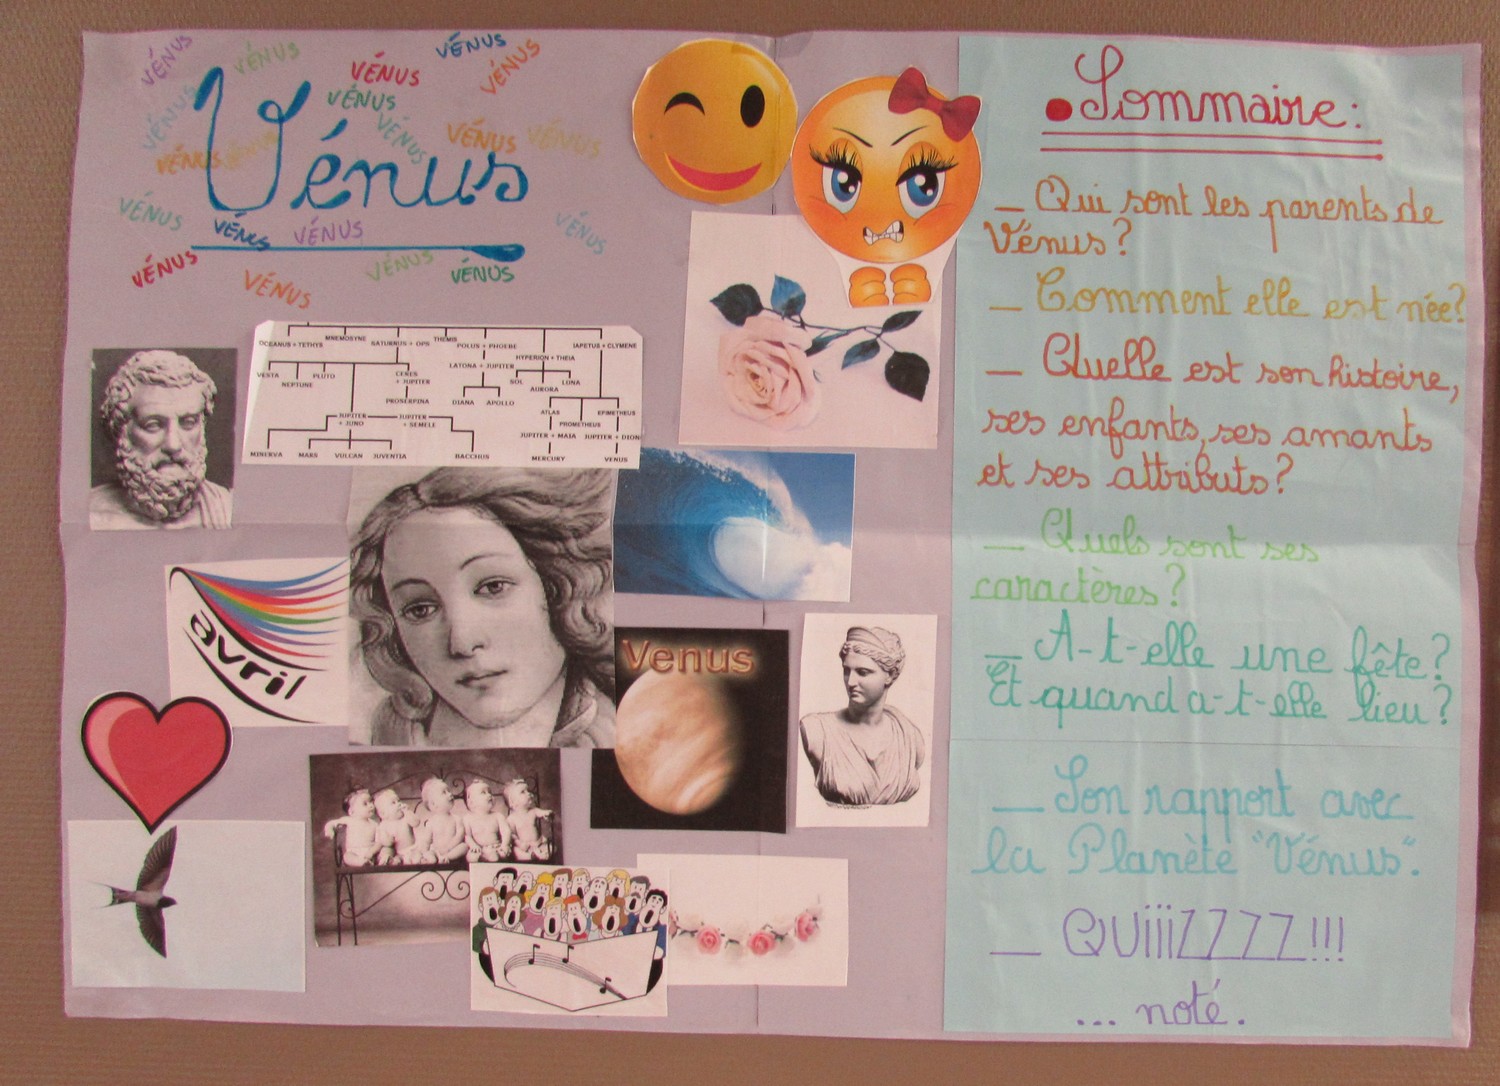 VÉNUS
VÉNUS
VÉNUS
VÉNUS
VÉNUS
VÉNUS
VÉNUS
VÉNUS
VÉNUS
VÉNUS
VÉNUS
VÉNUS
VÉNUS
Vénus
VÉNUS
VÉNUS
VÉNUS
VÉNUS
VÉNUS
VÉNUS
VÉNUS
VÉNUS
OCEANUS + TETHYS MNEMOSYNE SATURNUS + OPS THEMIS POLUS + PHOEBE IAPETUS + CLYMENE
HYPERION + THEIA
VESTA NEPTUNE PLUTO CERES + JUPITER LATONA + JUPITER SOL AURORA LUNA
PROSERPINA DIANA APOLLO
JUPITER + JUNO JUPITER + SEMELE ATLAS PROMETHEUS EPIMETHEUS
JUPITER + MAIA JUPITER + DION
MINERVA MARS VULCAN JUVENTIA BACCHUS MERCURY VENUS
avril
Venus
Sommaire:
_ Qui sont les parents de
Vénus?
_ Comment elle est née?
_ Quelle est son histoire,
ses enfants, ses amants
et ses attributs?
_ Quels sont ses
caractères?
_ A-t-elle une fête?
Et quand a-t-elle lieu?
_ Son rapport avec
la Planète "Vénus".
_ QUiiiZZZZ!!!
... noté.